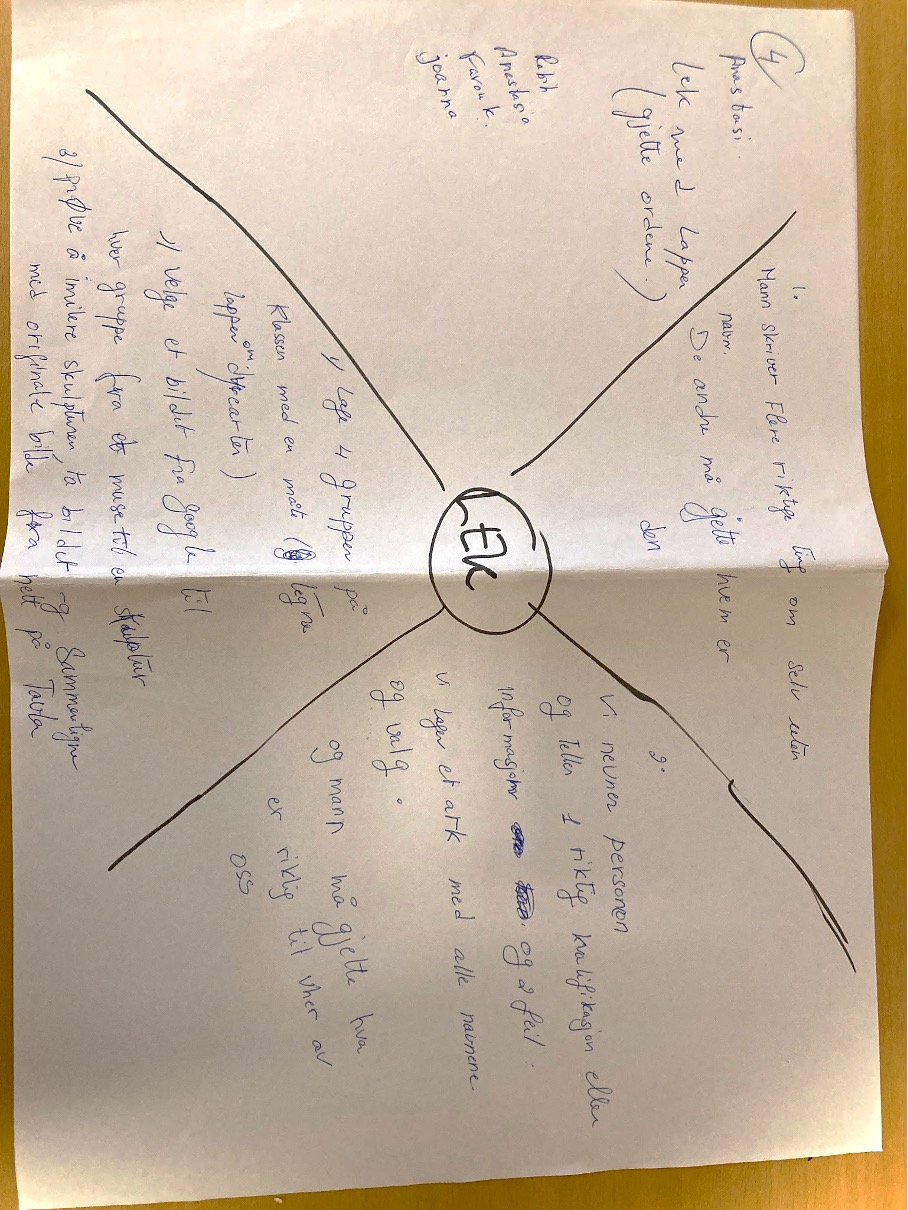 4
Anastasi.
Lek med Lapper
(gjette ordene.)
Rabih
Anastasia
Farouk.
joanna
1.
Mann skriver Flere riktige ting om selv uten
navn.
De andre må gjette hvem er
den
LEK
2.
Vi nevner personen
og Teller 1 riktig kvalifikasjon eller
informasjon og 2 feil.
Vi lager et ark med alle navnene
og valg.
og mann må gjette hva
er riktig til vher av
oss
1) Lage 4 grupper på
Klassen med en måte ( legne
lapper om dyrearter)
1) Velge et bildet fra google til
hver gruppe fra et muse til en skulptur
3) prøve å imitere skulpturen ta bildet og Sammenligne
med originale bilde fra nett på Tavla